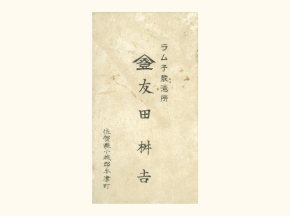 ラムネ製造所
登 友田桝吉
佐賀縣小城郡牛津町